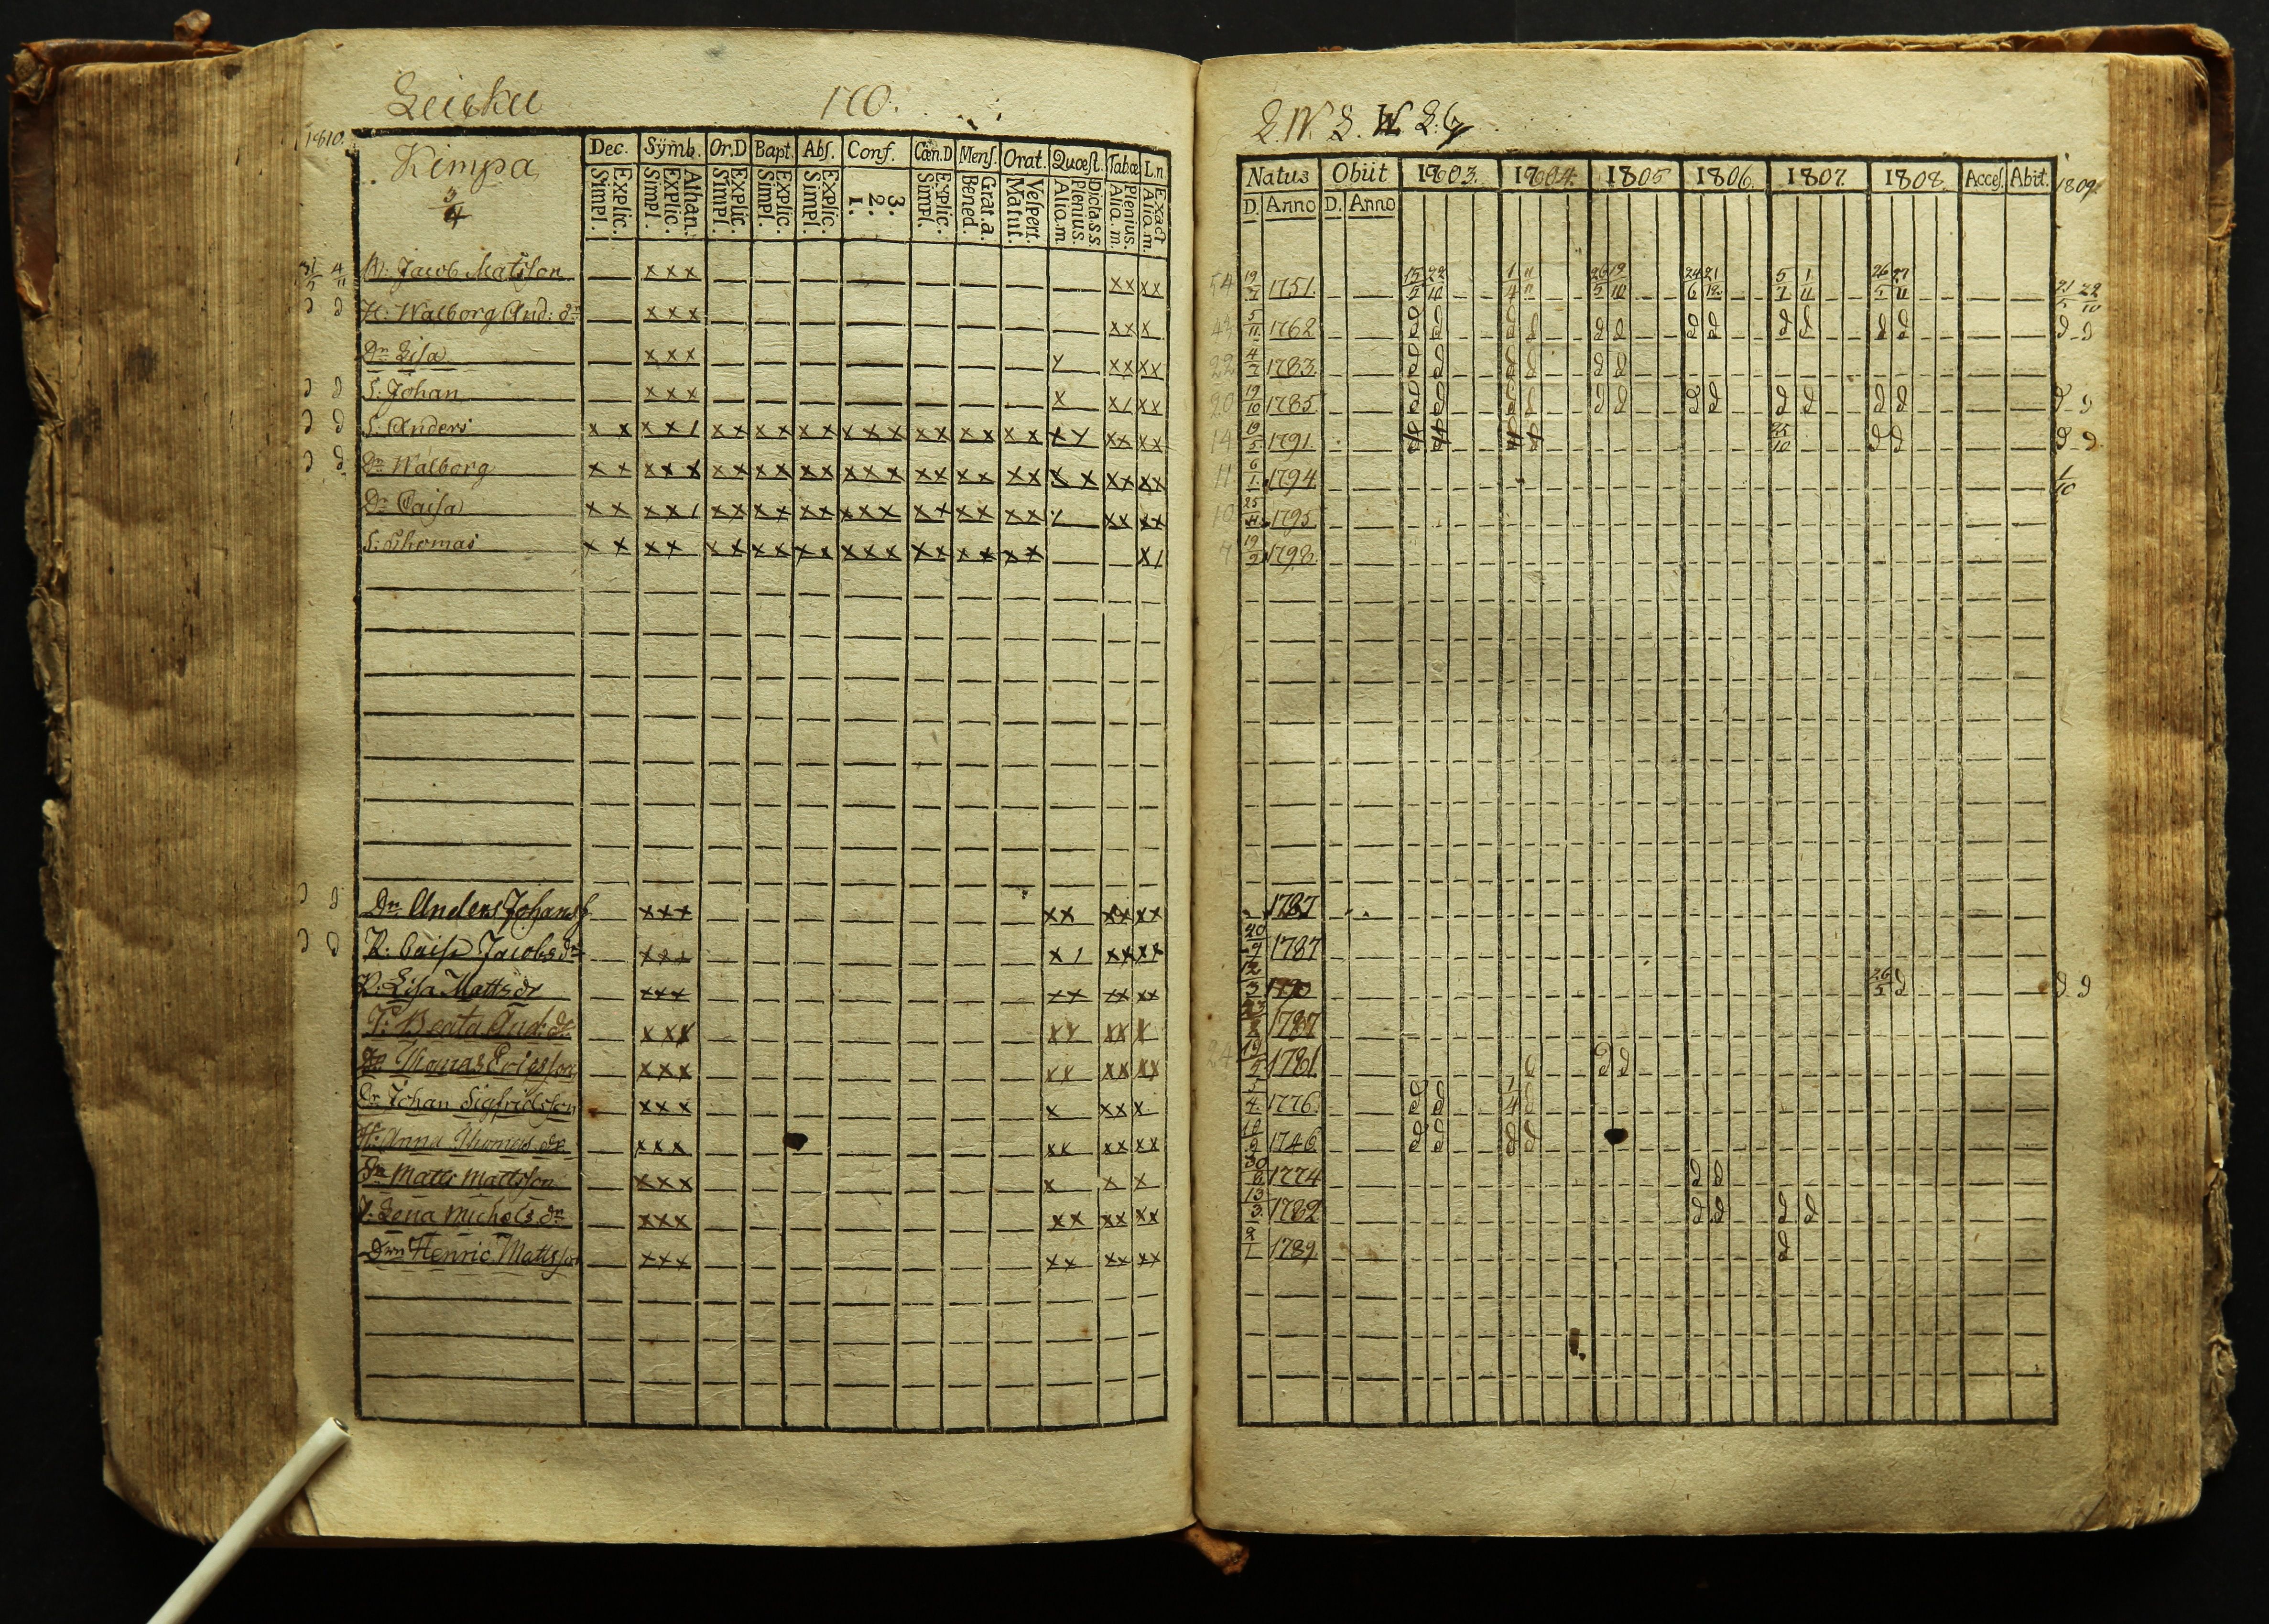 Leisku 170.
1810.
Kimpa
3/4
Dec. Sÿmb. Or.D Bapt. Abſ. Conf. Cœn.D Menſ. Orat. Quœſt. Tabœ L.n.
Explic. Simpl.
Athan. Explic. Simpl.
Explic. Simpl.
Explic. Simpl.
Explic. Simpl.
3. 2. 1.
Explic. Simpl.
Grat.a. Bened.
Veſpert. Matut.
Dicta.s.s. Plenius. Alio.m.
Plenius. Alio.m.
Exact Alio.m.
31/5 4/11 B: Jacob Matsson xxx xx xx
d d H: Walborg And: dr xxx xx x
Dr Lisa xxx xx xx
d d S: Johan xxx x x/ xx
d d S: Anders x x xx/ xx xx xx xxx xx xx xx xx xx
d d Dr Walborg x x xxx xx xx xx xxx xx xx xx x x xx xx
Dr Caisa x x xx/ xx xx xx xxx xx xx xx xx xx
S: Thomas x x xx xx xx xx xxx xx xx xx x/
d d Dr Anders Johans xxx xx xx xx
d d P: Caisa Jacobs dr xxx x/ xx xx
P: Lisa Matts dr xxx xx xx xx
P: Beata And: dr xxx xx xx x
Dr Thomas Ericsson xxx xx xx xx
Dr Johan Sigfridsson xxx x xx x
H: Anna Thomas dr xxx xx xx xx
Dr Matts Mattsson xxx x x x
P: Lena Michels dr xxx xx xx xx
Drn Henric Mattsson xxx xx xx xx
Natus Obiit 1803. 1804. 1805 1806. 1807. 1808. Acceſ. Abit. 1809
D. Anno D. Anno
54 19/7 1751. 15/5 22/10 1/4 26/5 19/10 24/6 21/12 5/7 1/11 26/5 27/11 21/5 22/10
43 5/11 1762 d d d d d d d d d d d d d d
22 4/7 1783 d d d d d d
20 19/10 1785 d d d d d d d d d d d d d d
14 19/5 1791. 25/10 d d d d
11 6/1 1794 1/10
10 25/11 1795
7 19/2 1798
1787
20/9 1787
12/3 1790 26/5 d d d
1787
24 1781 d d
5/4 1776 d d 1/4 d
1746 d d d d
30/6 1774 d d
13/3 1782 d d d d
2/1 1789. d